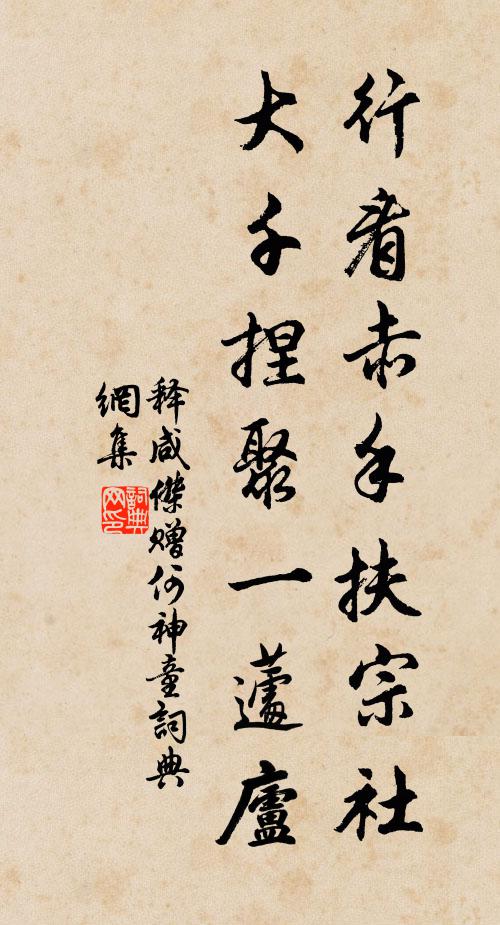 行看赤手扶宗社
大千捏聚一蘧廬
释咸傑赠何神童詞典
網集
詞典
网印